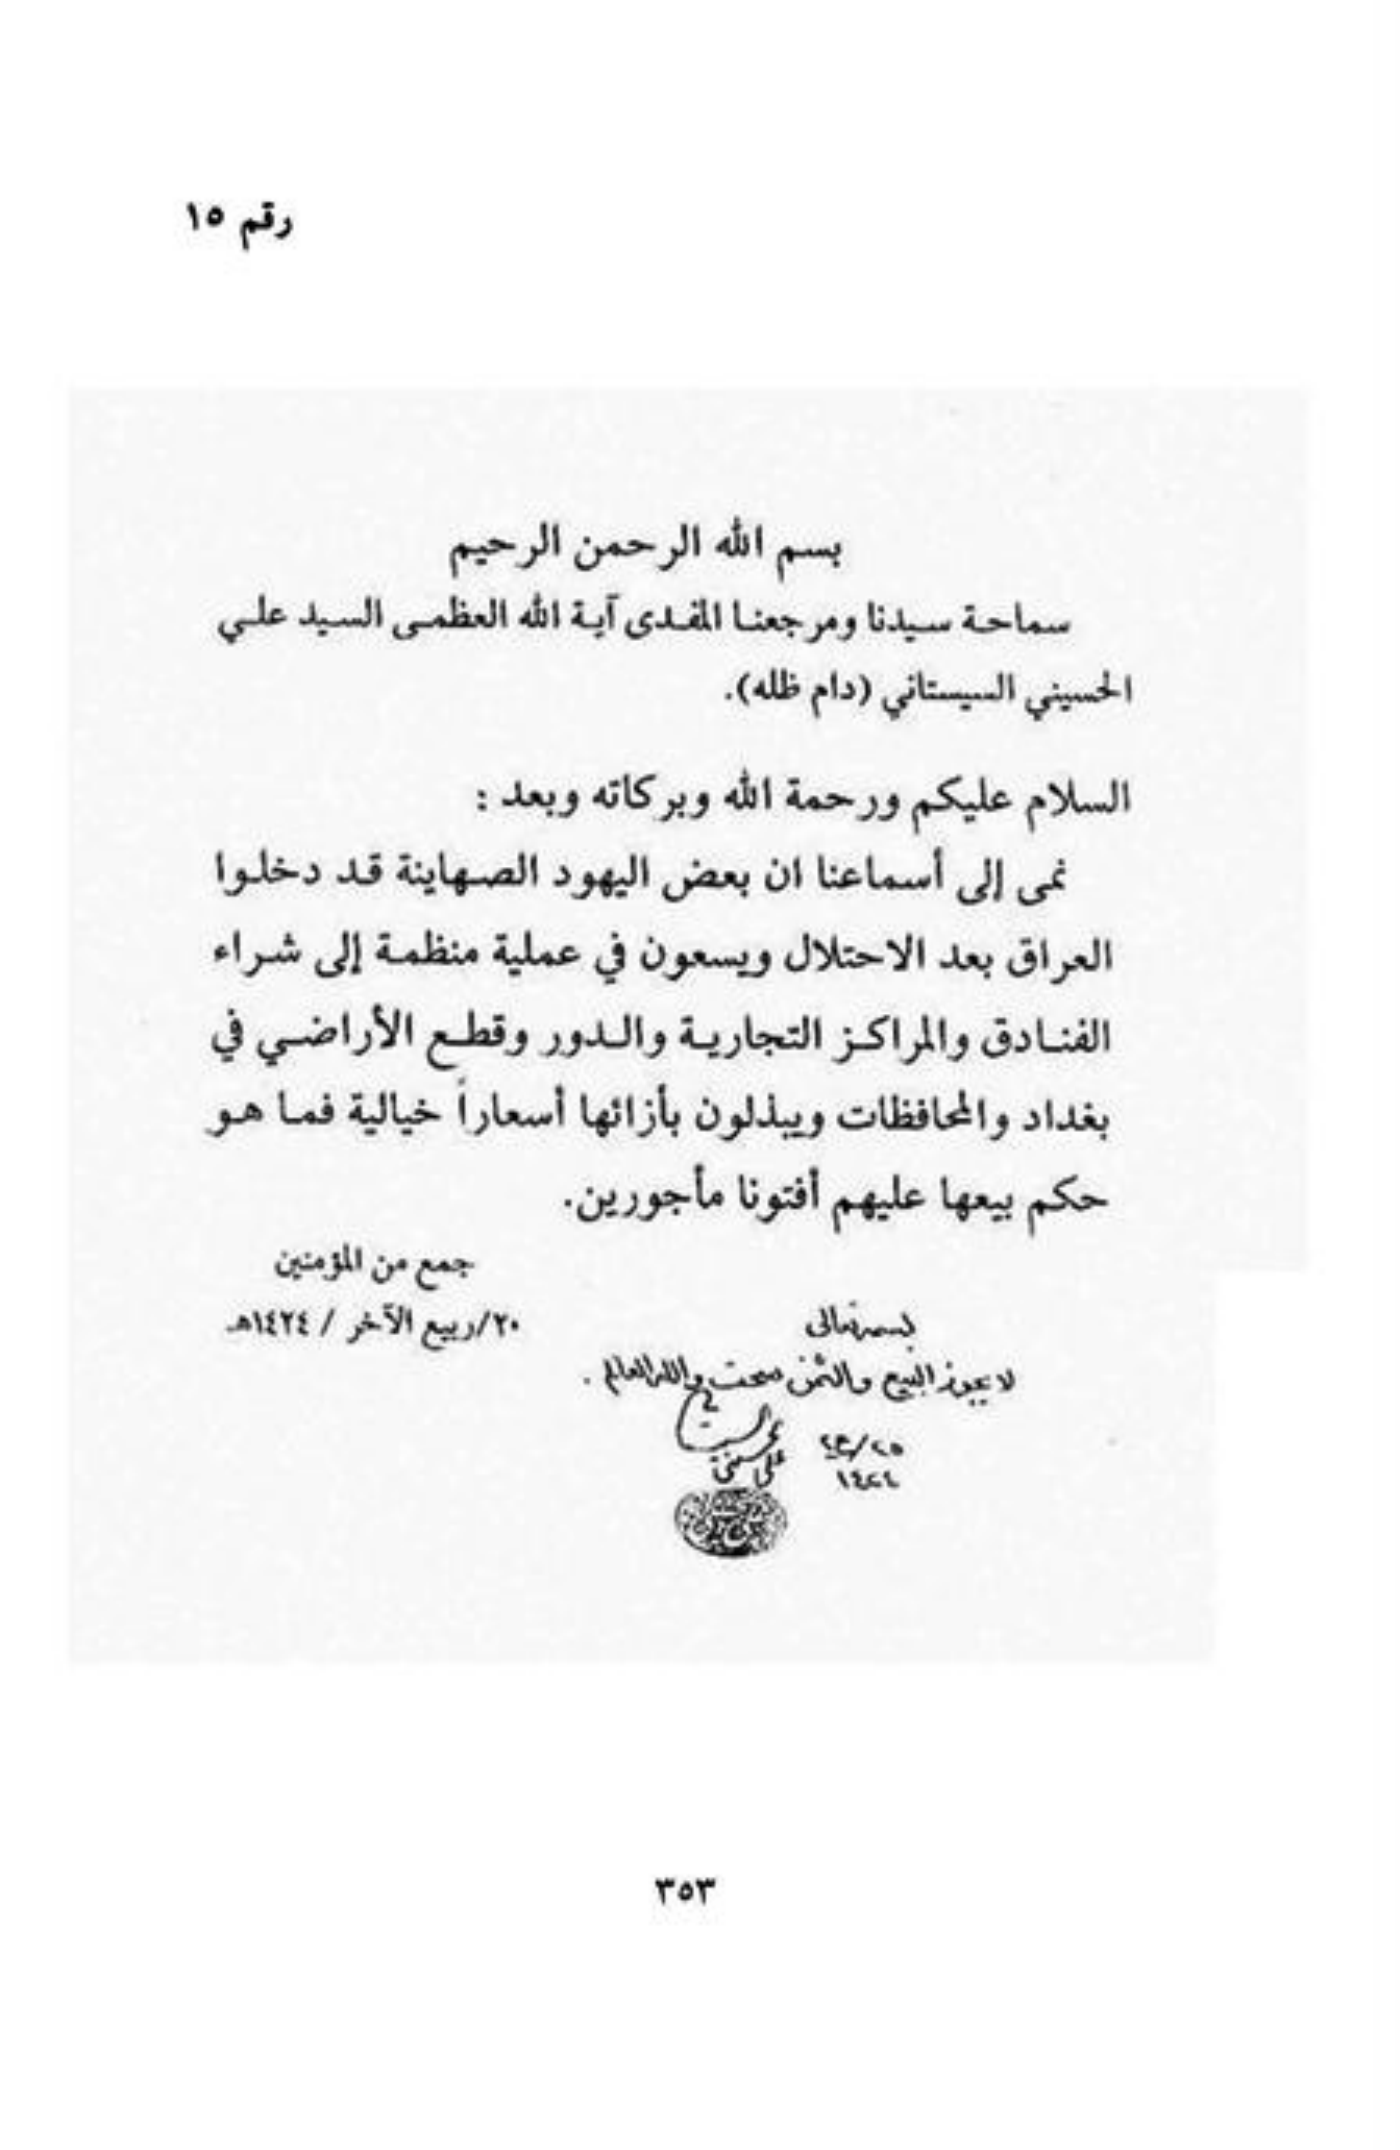 رقم ١٥
بسم الله الرحمن الرحيم
سماحة سيدنا ومرجعنا المفدى آية الله العظمى السيد علي
الحسيني السيستاني (دام ظله).
السلام عليكم ورحمة الله وبركاته وبعد :
نمى إلى أسماعنا ان بعض اليهود الصهاينة قد دخلوا
العراق بعد الاحتلال ويسعون في عملية منظمة إلى شراء
الفنادق والمراكز التجارية والدور وقطع الأراضي في
بغداد والمحافظات ويبذلون بأزائها أسعاراً خيالية فما هو
حكم بيعها عليهم أفتونا مأجورين.
جمع من المؤمنين
٢٠/ربيع الآخر / ١٤٢٤هـ
بسمه تعالى
لا يجوز البيع والثمن سحت والله العالم .
علي الحسيني السيستاني
١٤٢٤
٣٥٣